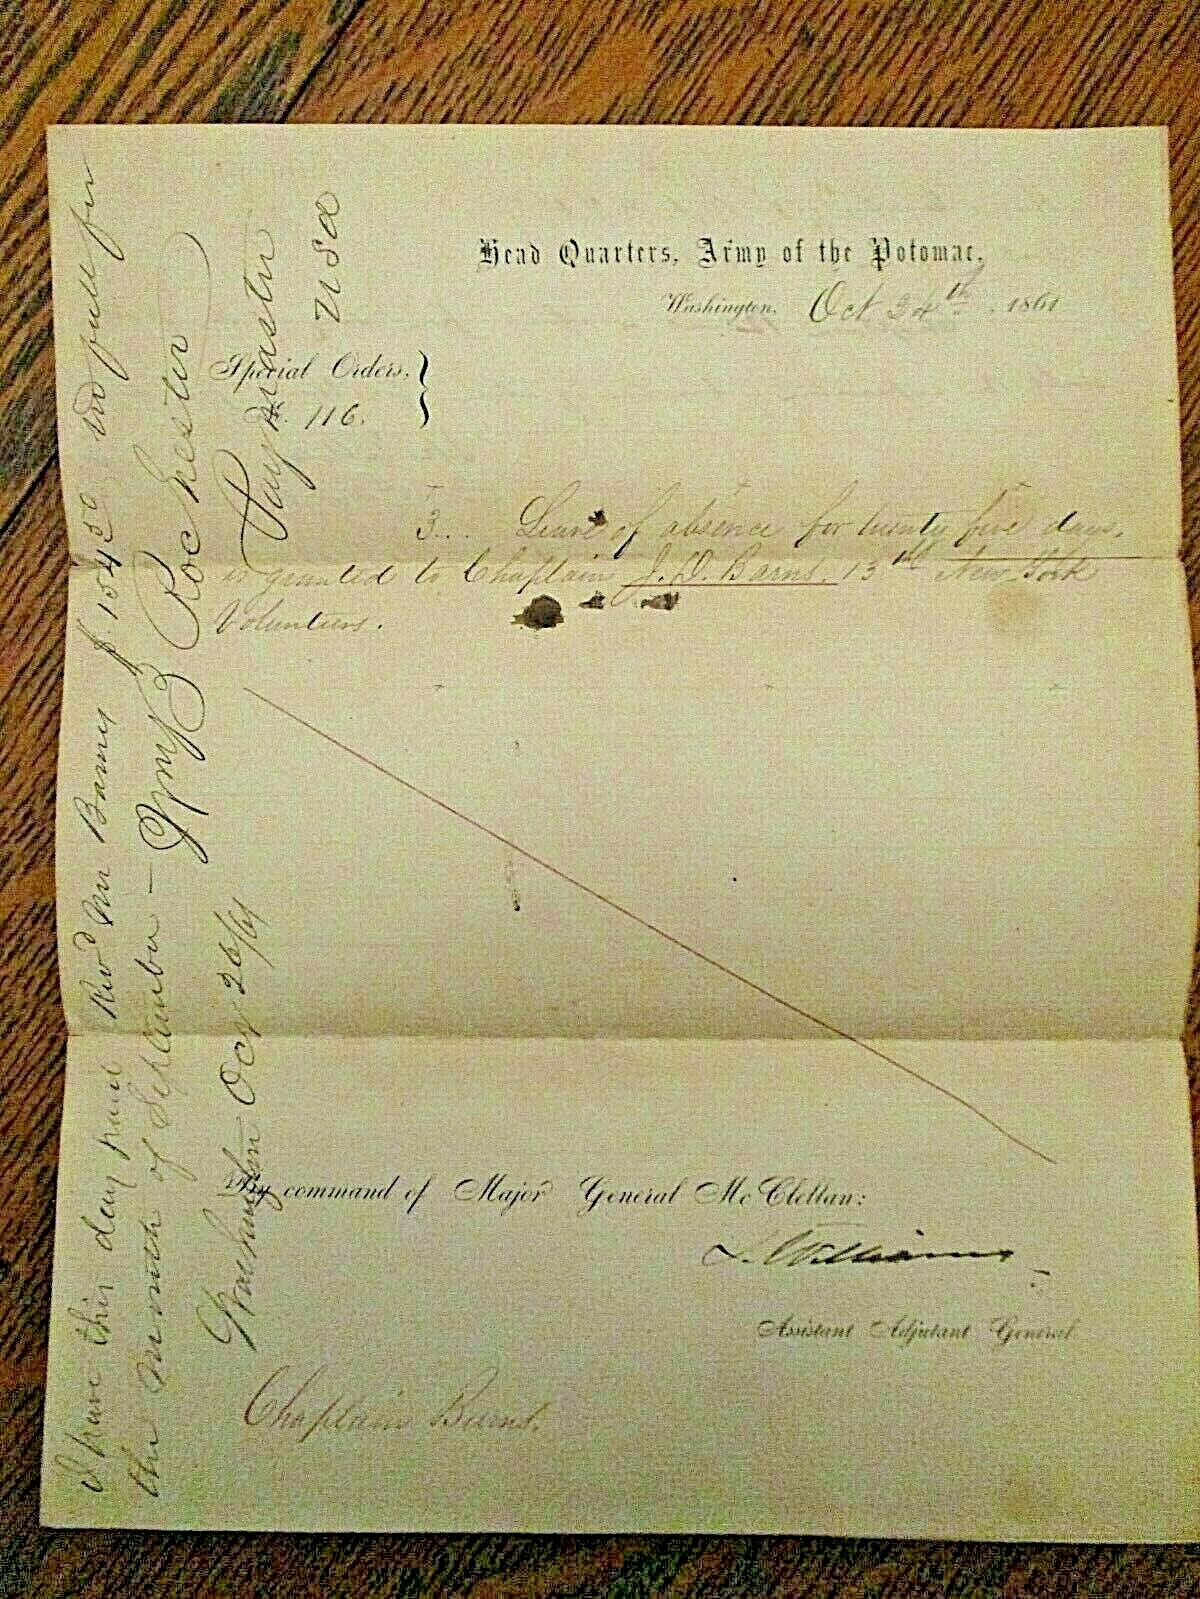 Head Quarters, Army of the Potomac,
Washington, Oct 24th, 1861
Special Orders,
No. 116.
3... Leave of absence for twenty five days,
is granted to Chaplain J. D. Barns, 13th New York
Volunteers.
By command of Major General McClellan:
S. Williams
Assistant Adjutant General
Chaplain Burns.
I have this day paid Revd Mr Barnes $.154 50 in full for
the month of September —
Rochester
Paymaster
USA
Washington Oct 26/61